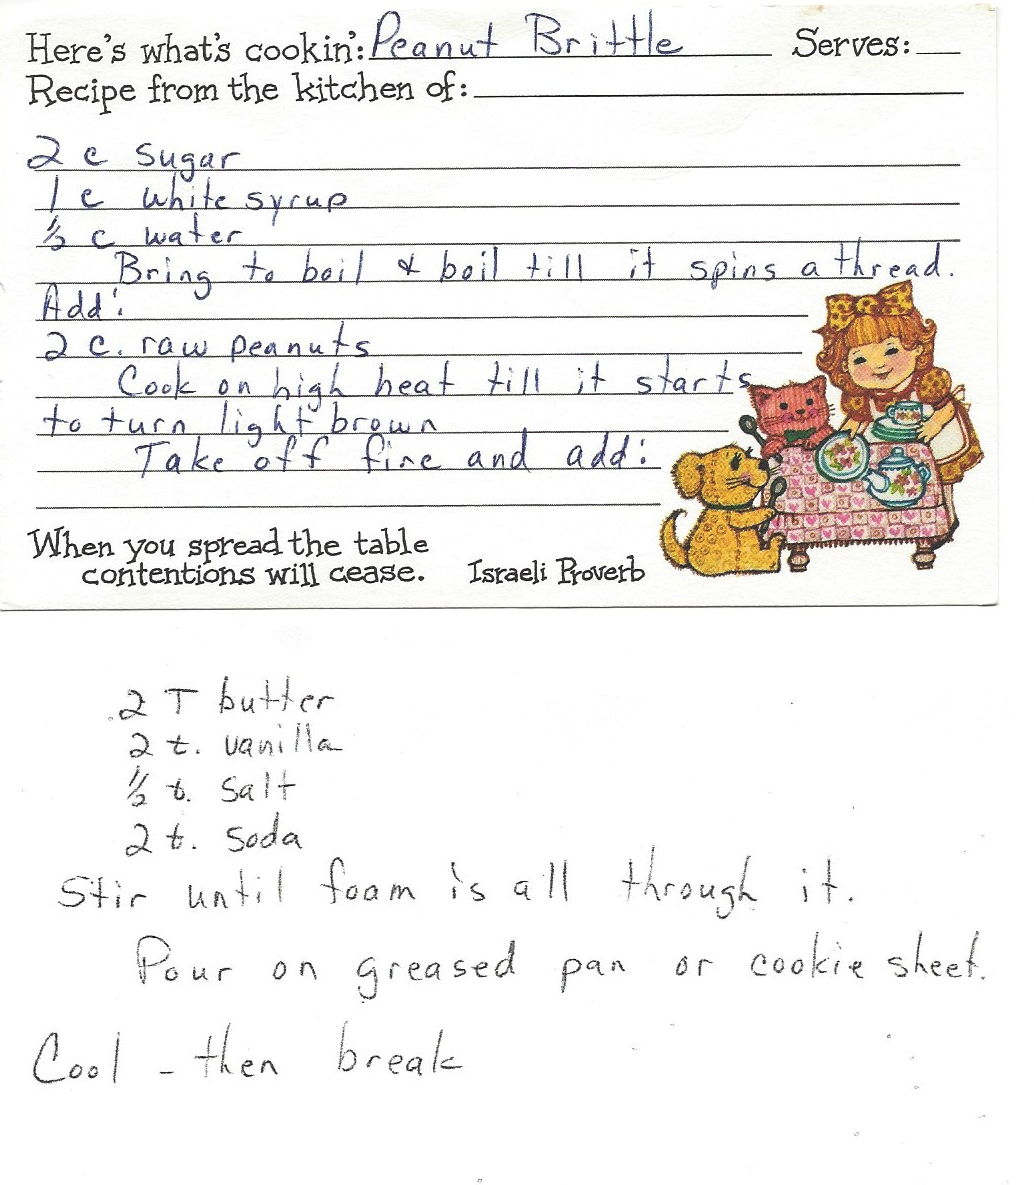 Here's what's cookin': Peanut Brittle Serves:
Recipe from the kitchen of:
2 c sugar
1 c white syrup
½ c water
Bring to boil & boil till it spins a thread.
Add:
2 c. raw peanuts
Cook on high heat till it starts
to turn light brown
Take off fire and add:
When you spread the table
contentions will cease. Israeli Proverb
2 T butter
2 t. vanilla
½ t. salt
2 t. soda
Stir until foam is all through it.
Pour on greased pan or cookie sheet.
Cool - then break